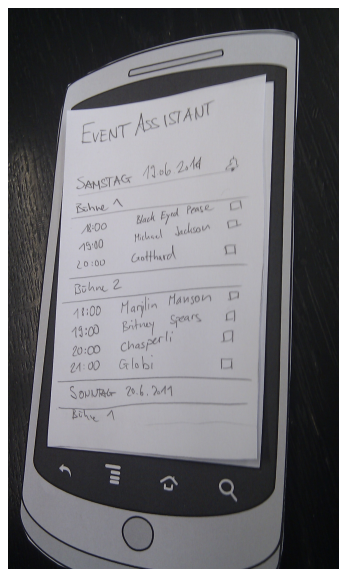 EVENT ASSISTANT
SAMSTAG 19.06.2011
Bühne 1
18:00 Black Eyed Pease
19:00 Michael Jackson
20:00 Gotthard
Bühne 2
18:00 Marylin Manson
19:00 Britney Spears
20:00 Chasperli
21:00 Globi
SONNTAG 20.6.2011
Bühne 1